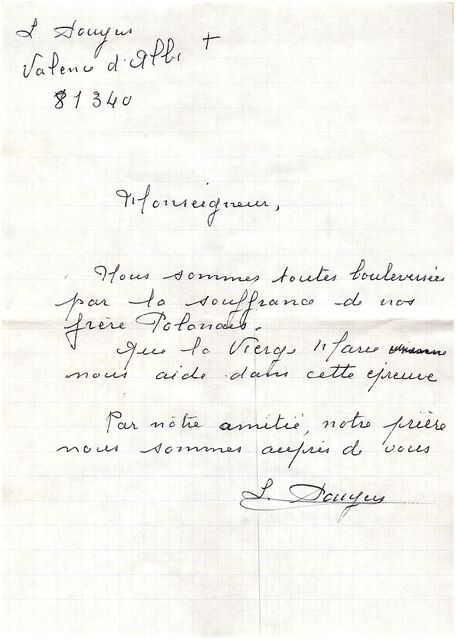 L
Valence d'Albi
81340
Monseigneur,
Nous sommes toutes bouleversées
par la souffrance de nos
frère Polonais.
Que la Vierge Marie
nous aide dans cette épreuve
Par nôtre amitié, notre prière
nous sommes auprès de vous
L.